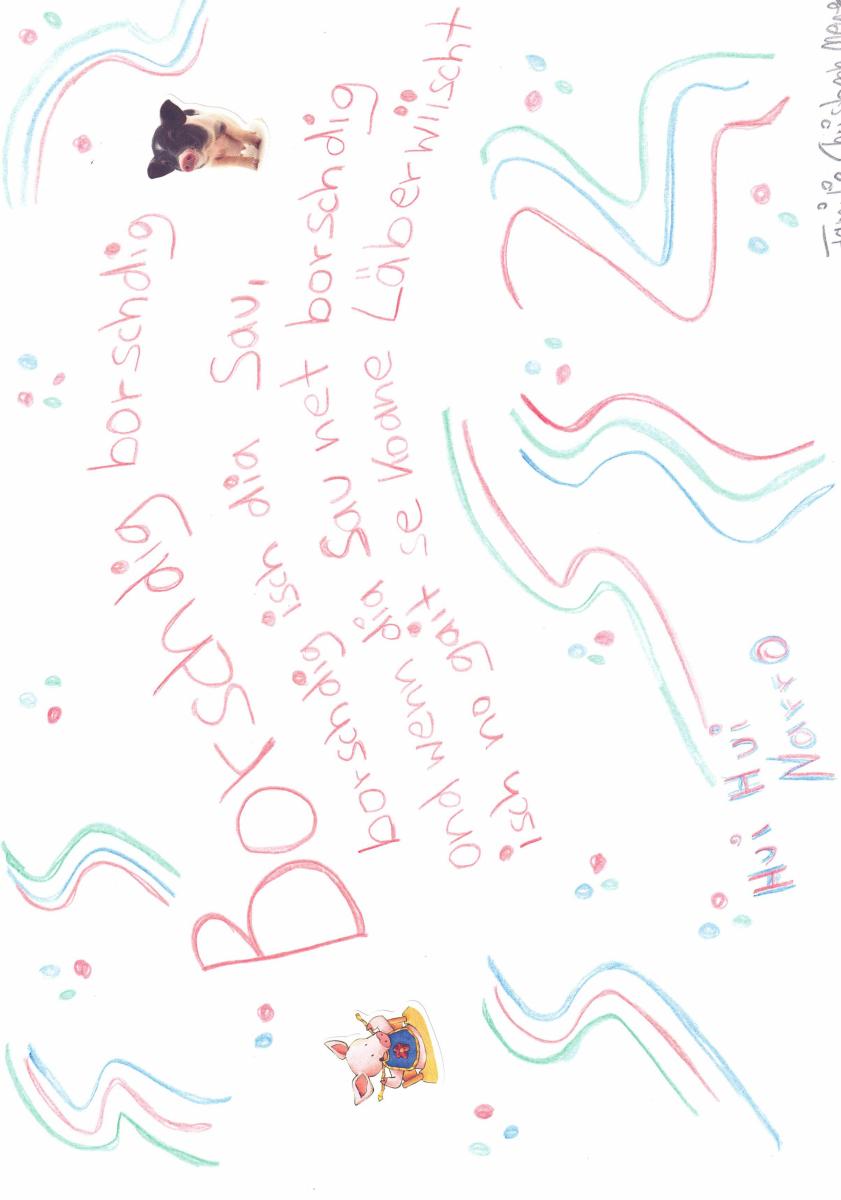 Borschdig borschdig
borschdig isch dia Sau,
ond wenn dia Sau net borschdig
isch no gait se koane Läberwiischt
Hui Hui
Narro